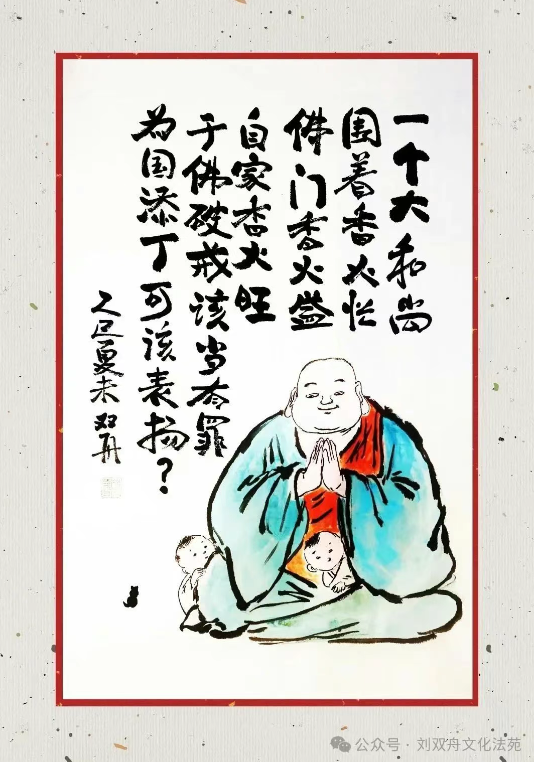 一个大和尚
围着香火忙
佛门香火盛
自家香火旺
于佛破戒该当有罪
为国添丁可该表扬？
乙巳夏末 双舟
公众号 · 刘双舟文化法苑